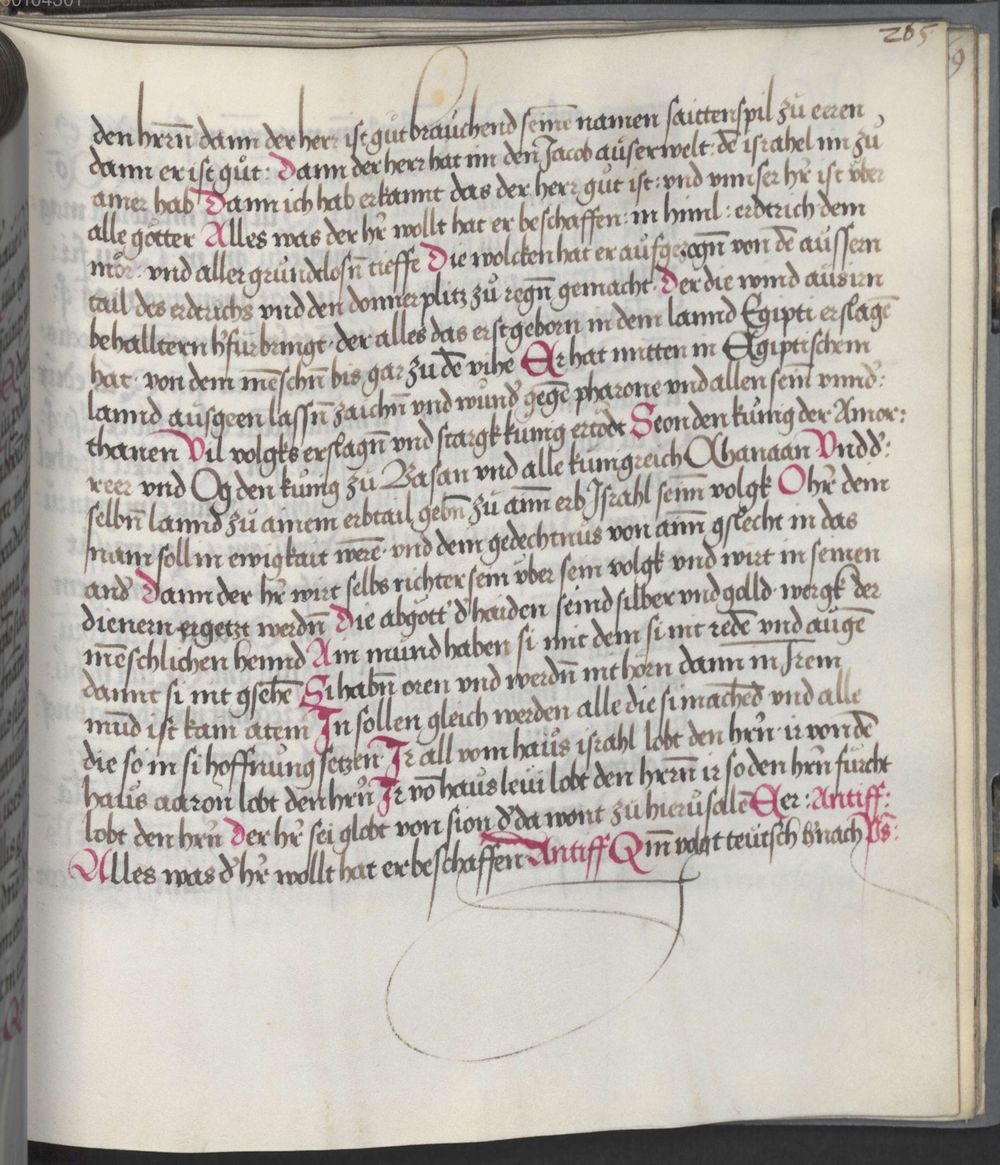 205
den hrrn̄ dann der herr ist gůt brauchend seinē namen saittenspil zů eeren
dann er ist gůt: Dann der herr hat im den Jacob außerwelt: dē israhel im zů
ainer hab Dann ich hab erkannt das der herr gůt ist: vnd vnnser hr̄ ist über
alle götter Alles was der hr̄ wollt hat er beschaffen: in himl: erdtrich dem
mör: vnd aller grundtlosn̄ tieffe Die wolcken hat er aufgezogn̄ von dē aussern
tail des erdtrichs vnd den donnerplitz zů regn̄ gemacht. Der die wind aus irn
behalltern hfür bringt. der alles das erstgeborn in dem lannd Egipti erslagē
hat. von dem mēschn̄ bis gar zů dē vihe Er hat mitten in Egiptischem
lannd ausgeen lassn̄ zaichn̄ vnd wund' gegē pharone vnd allen sein vnnd':
thanen Vil volgks erslagn̄ vnd starck kunig ertödt Seon den kunig der Amor:
reer vnd Og den kunig zů Basan vnd alle kunigreich Chanaan Vnd d':
selbn̄ lannd zů ainem erbtail gebn̄ zů aim̄ erb Israhl seim̄ volgk O hr̄ dein
nam soll in ewigkait werē. vnd dein gedechtnus von aim̄ gslecht in das
and' Dann der hr̄ wirt selbs richter sein über sein volgk vnd wirt in seinen
dienern ergetzt werdn̄ Die abgött d' haiden seind silber vnd gold. wergk der
mēschlichen hennd Ain mund haben si mit dem si nit redē vnd augē
damit si nit gsehē Si habn̄ oren vnd werdn̄ nit hörn dann in Irem
mūd ist kain atem In sollen gleich werden alle die si machēd vnd alle
die so in si hoffnung setzen Ir all vom haus israhl lobt den hrn̄ ir von dē
haus aaron lobt den hrn̄ Ir vō haus leui lobt den hrrn̄ ir so den hrn̄ furcht
lobt den hrn̄ Der hr̄ sei globt von sion d' da wont zů hierusalē Eer: Antiff:
Alles was d' hr̄ wollt hat er beschaffen Antiff Qm̄ volgt teutsch hnach Ps: